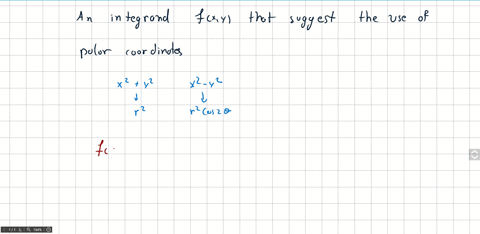 An integrand f(x,y) that suggest the use of
polar coordinates
x² + y² x² - y²
↓ ↓
r² r² Cos 2θ
f(